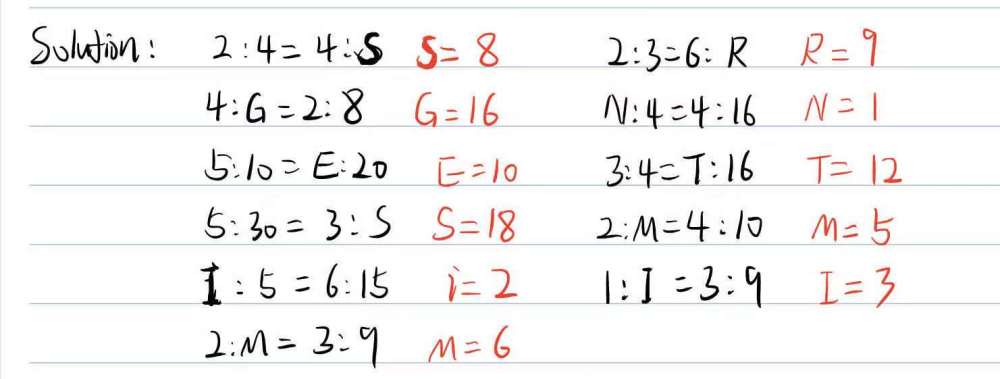 Solution: 2:4=4:S S=8 2:3=6:R R=9
4:G=2:8 G=16 N:4=4:16 N=1
5:10=E:20 E=10 3:4=T:16 T=12
5:30=3:S S=18 2:M=4:10 M=5
I:5=6:15 i=2 1:I=3:9 I=3
2:M=3:9 M=6